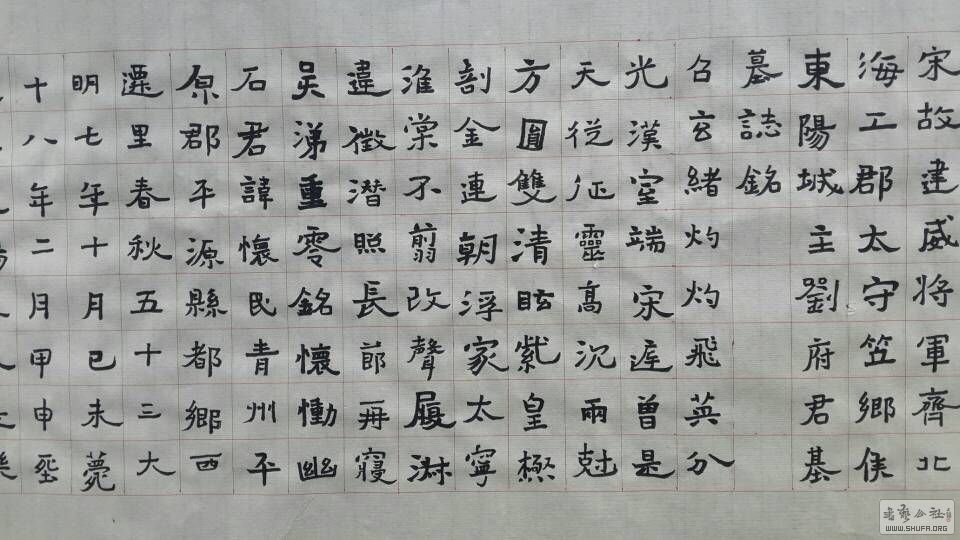 宋故建威將軍齊北
海工郡太守笠鄉侯
東陽城主劉府君基
墓誌銘
召玄緒灼灼飛英分
光漢室端宋遅曾是
天從征靈高沉兩尅
方圓雙清眩紫皇極
剖金連朝浮家太寧
淮棠不翦改聲履淋
違徽潛照長莭再寢
吳涕重零銘懷慟幽
石君諱懷民青州平
原郡平源縣都鄉西
遷里春秋五十三大
明七年十月己未薨
十八年二月甲申窆
書藝公社
WWW.SHUFA.ORG